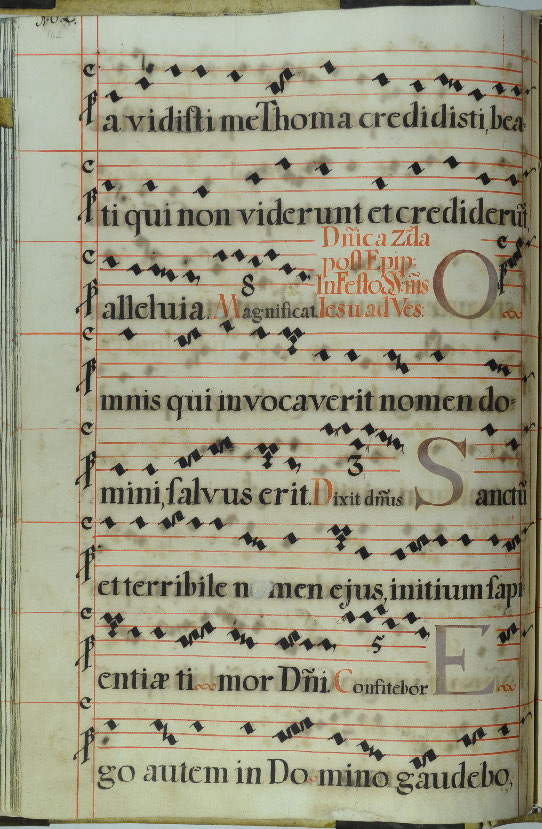 162
a vidisti me Thoma credidisti, bea-
ti qui non viderunt et crediderūt,
Dñica 2.da
post Epip:
In Festo SS. Nñis
Iesu ad Ves:
alleluia. 8 Magnificat. O
mnis qui invocaverit nomen do-
mini, salvus erit. 3 Dixit dñus Sanctū
et terribile n men ejus, initium sapi-
entiæ ti mor Dñi. 5 Confitebor E
go autem in Do mino gaudebo,